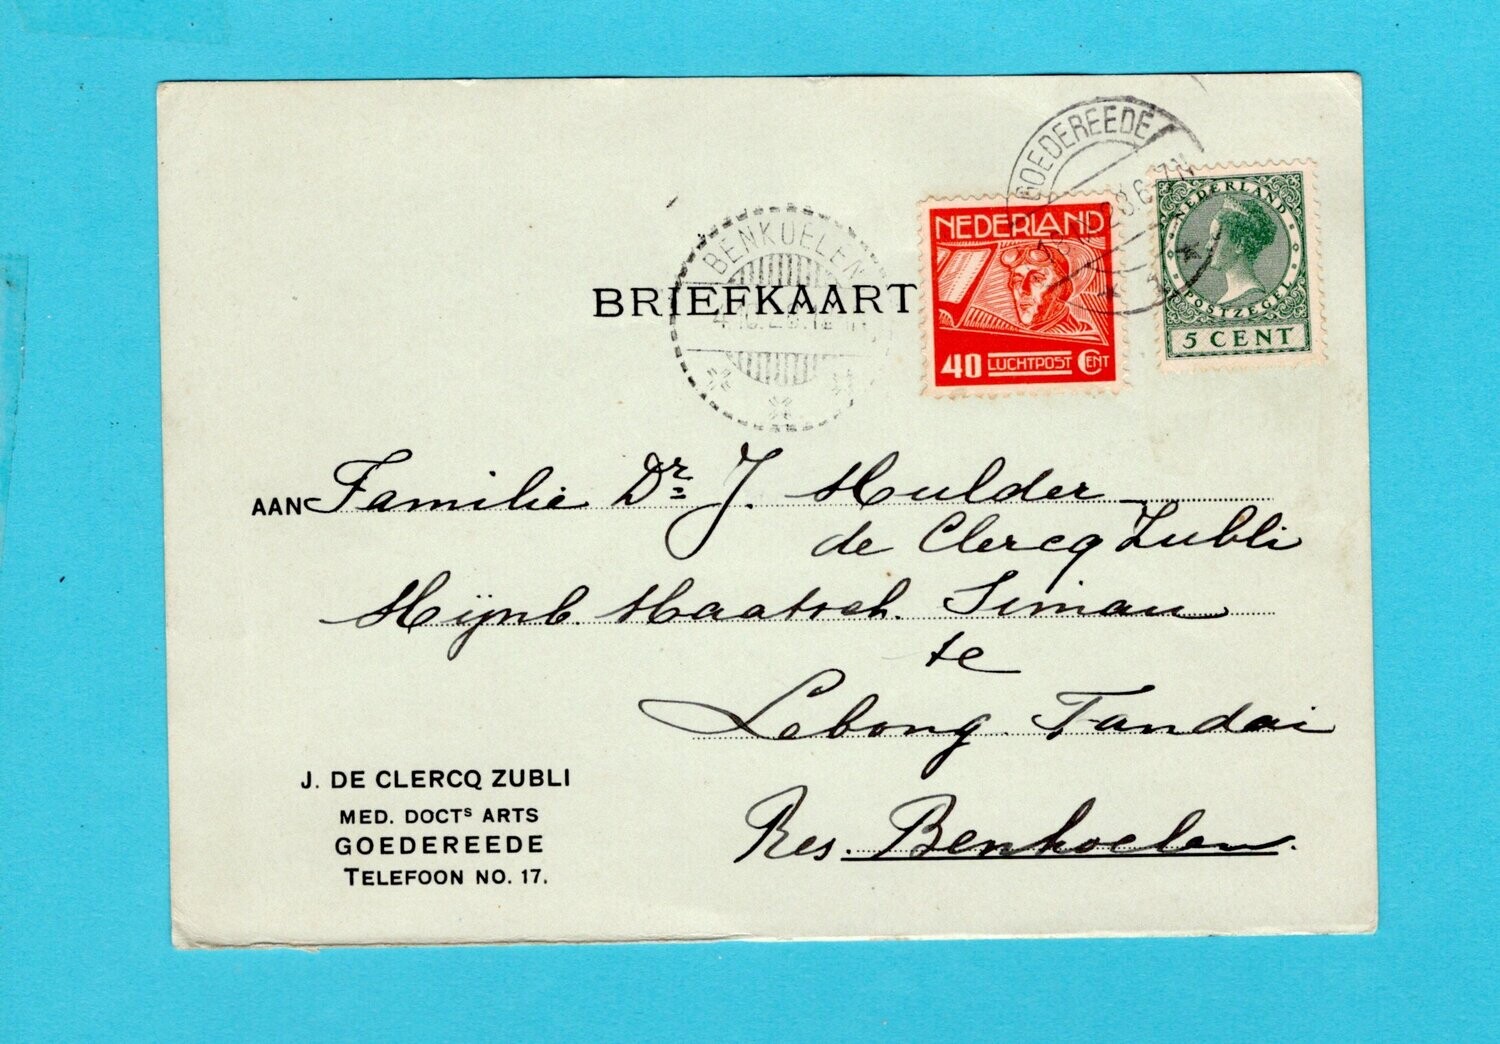 GOEDEREEDE
28.6-7N
NEDERLAND
40 LUCHTPOST CENT
NEDERLAND
POSTZEGEL
5 CENT
BENKOELEN
BRIEFKAART
AAN Familie Dr. J. Mulder
de Clercq Zubli
Mijnb. Maatsch. Simau
te
Lebong Tandai
Res. Benkoelen.
J. DE CLERCQ ZUBLI
MED. DOCTS ARTS
GOEDEREEDE
TELEFOON NO. 17.